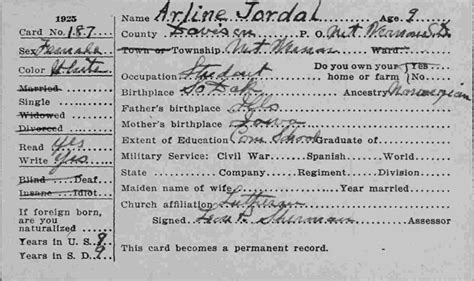 1925
Card No. 187
Sex Female
Color White
Married
Single
Widowed
Divorced
Read Yes
Write Yes
Blind Deaf
Insane Idiot
If foreign born, are you naturalized
Years in U.S. 9
Years in S.D. 9
Name Arline Jordal Age 9
County Davison P. O. Mt. Vernon S.D.
Town or Township Mt. Vernon Ward
Occupation Student Do you own your home or farm Yes No
Birthplace So Dak Ancestry Norwegian
Father's birthplace
Mother's birthplace Iowa
Extent of Education Com School Graduate of
Military Service: Civil War Spanish World
State Company Regiment Division
Maiden name of wife Year married
Church affiliation Lutheran
Signed Sherman Assessor
This card becomes a permanent record.